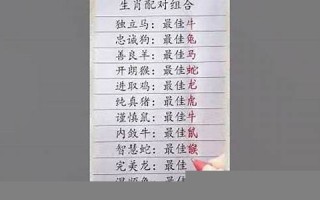 生肖配对组合
独立马：最佳牛
忠诚狗：最佳兔
善良羊：最佳马
开朗猴：最佳蛇
进取鸡：最佳龙
纯真猪：最佳虎
谨慎鼠：最佳牛
内敛牛：最佳鼠
智慧蛇：最佳猴
完美龙：最佳